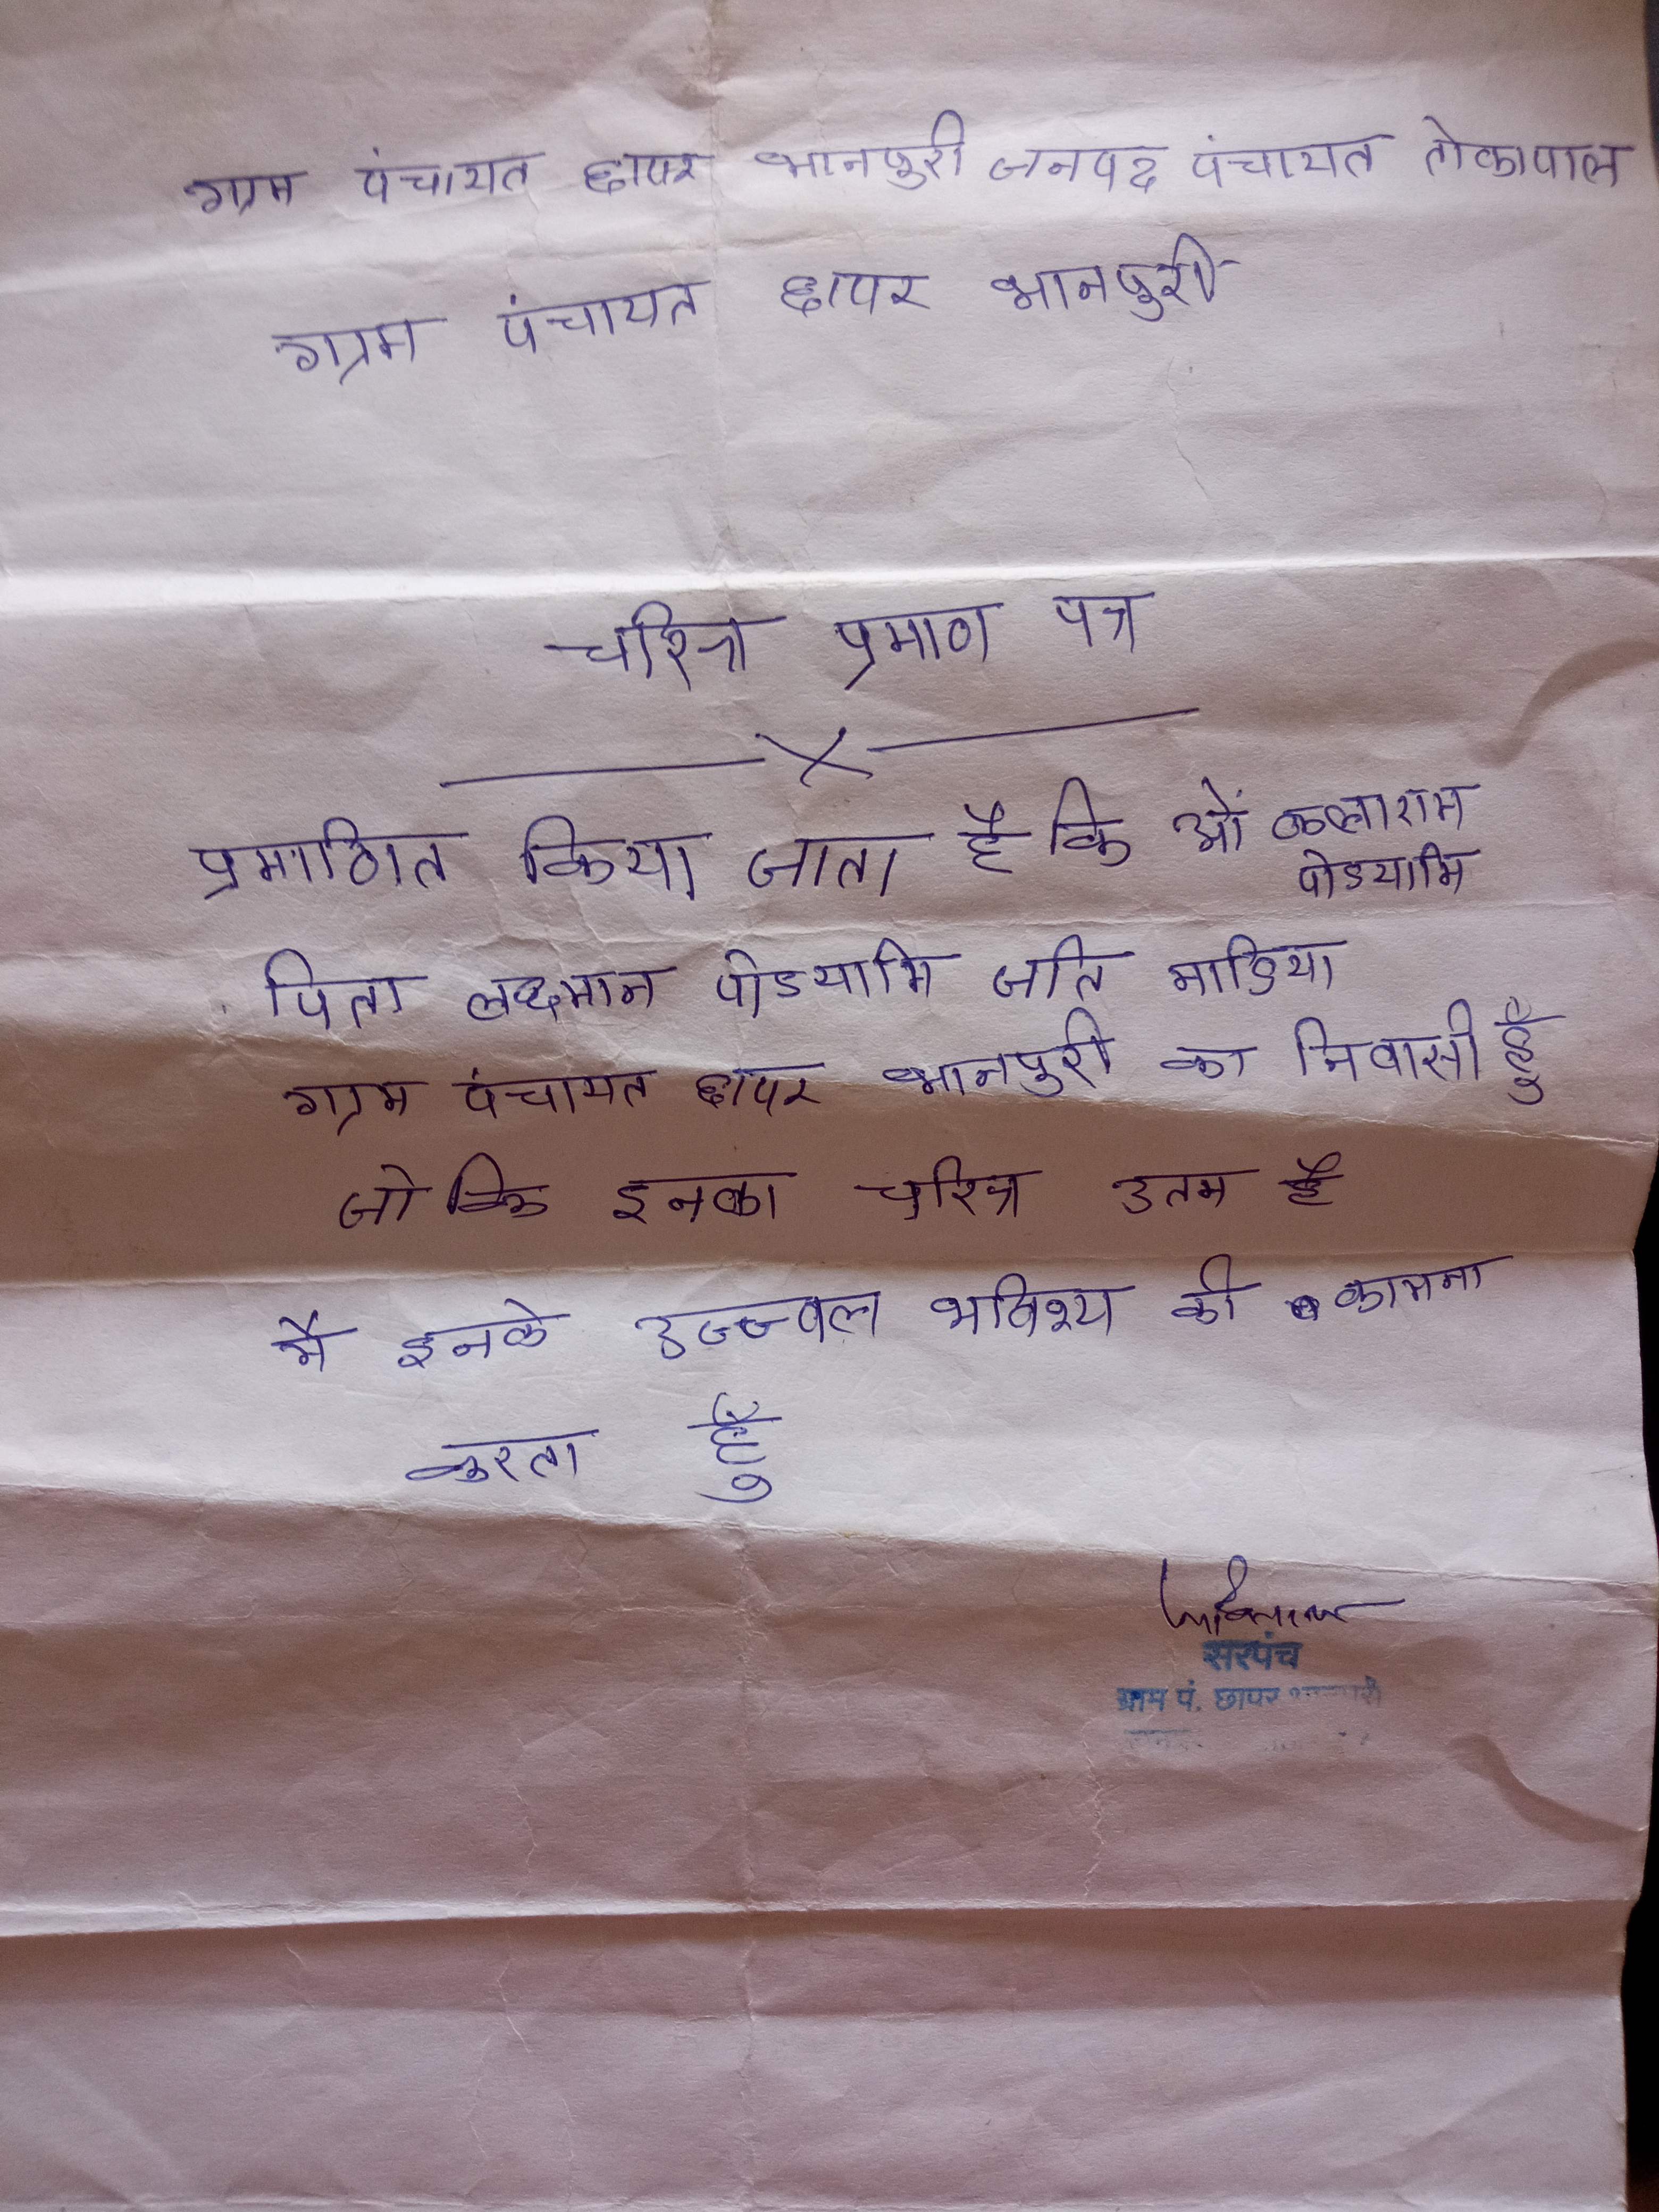 ग्राम पंचायत छापर भानपुरी जनपद पंचायत तोकापाल
ग्राम पंचायत छापर भानपुरी
चरित्र प्रमाण पत्र
प्रमाणित किया जाता है कि ओं कलाराम
पोडयामि
पिता लक्ष्मान पोडयामि जाति माडिया
ग्राम पंचायत छापर भानपुरी का निवासी हूँ
जो कि इनका चरित्र उतम है
मै इनके उज्ज्वल भविश्य की कामना
करता हूँ
सरपंच
ग्राम पं. छापर